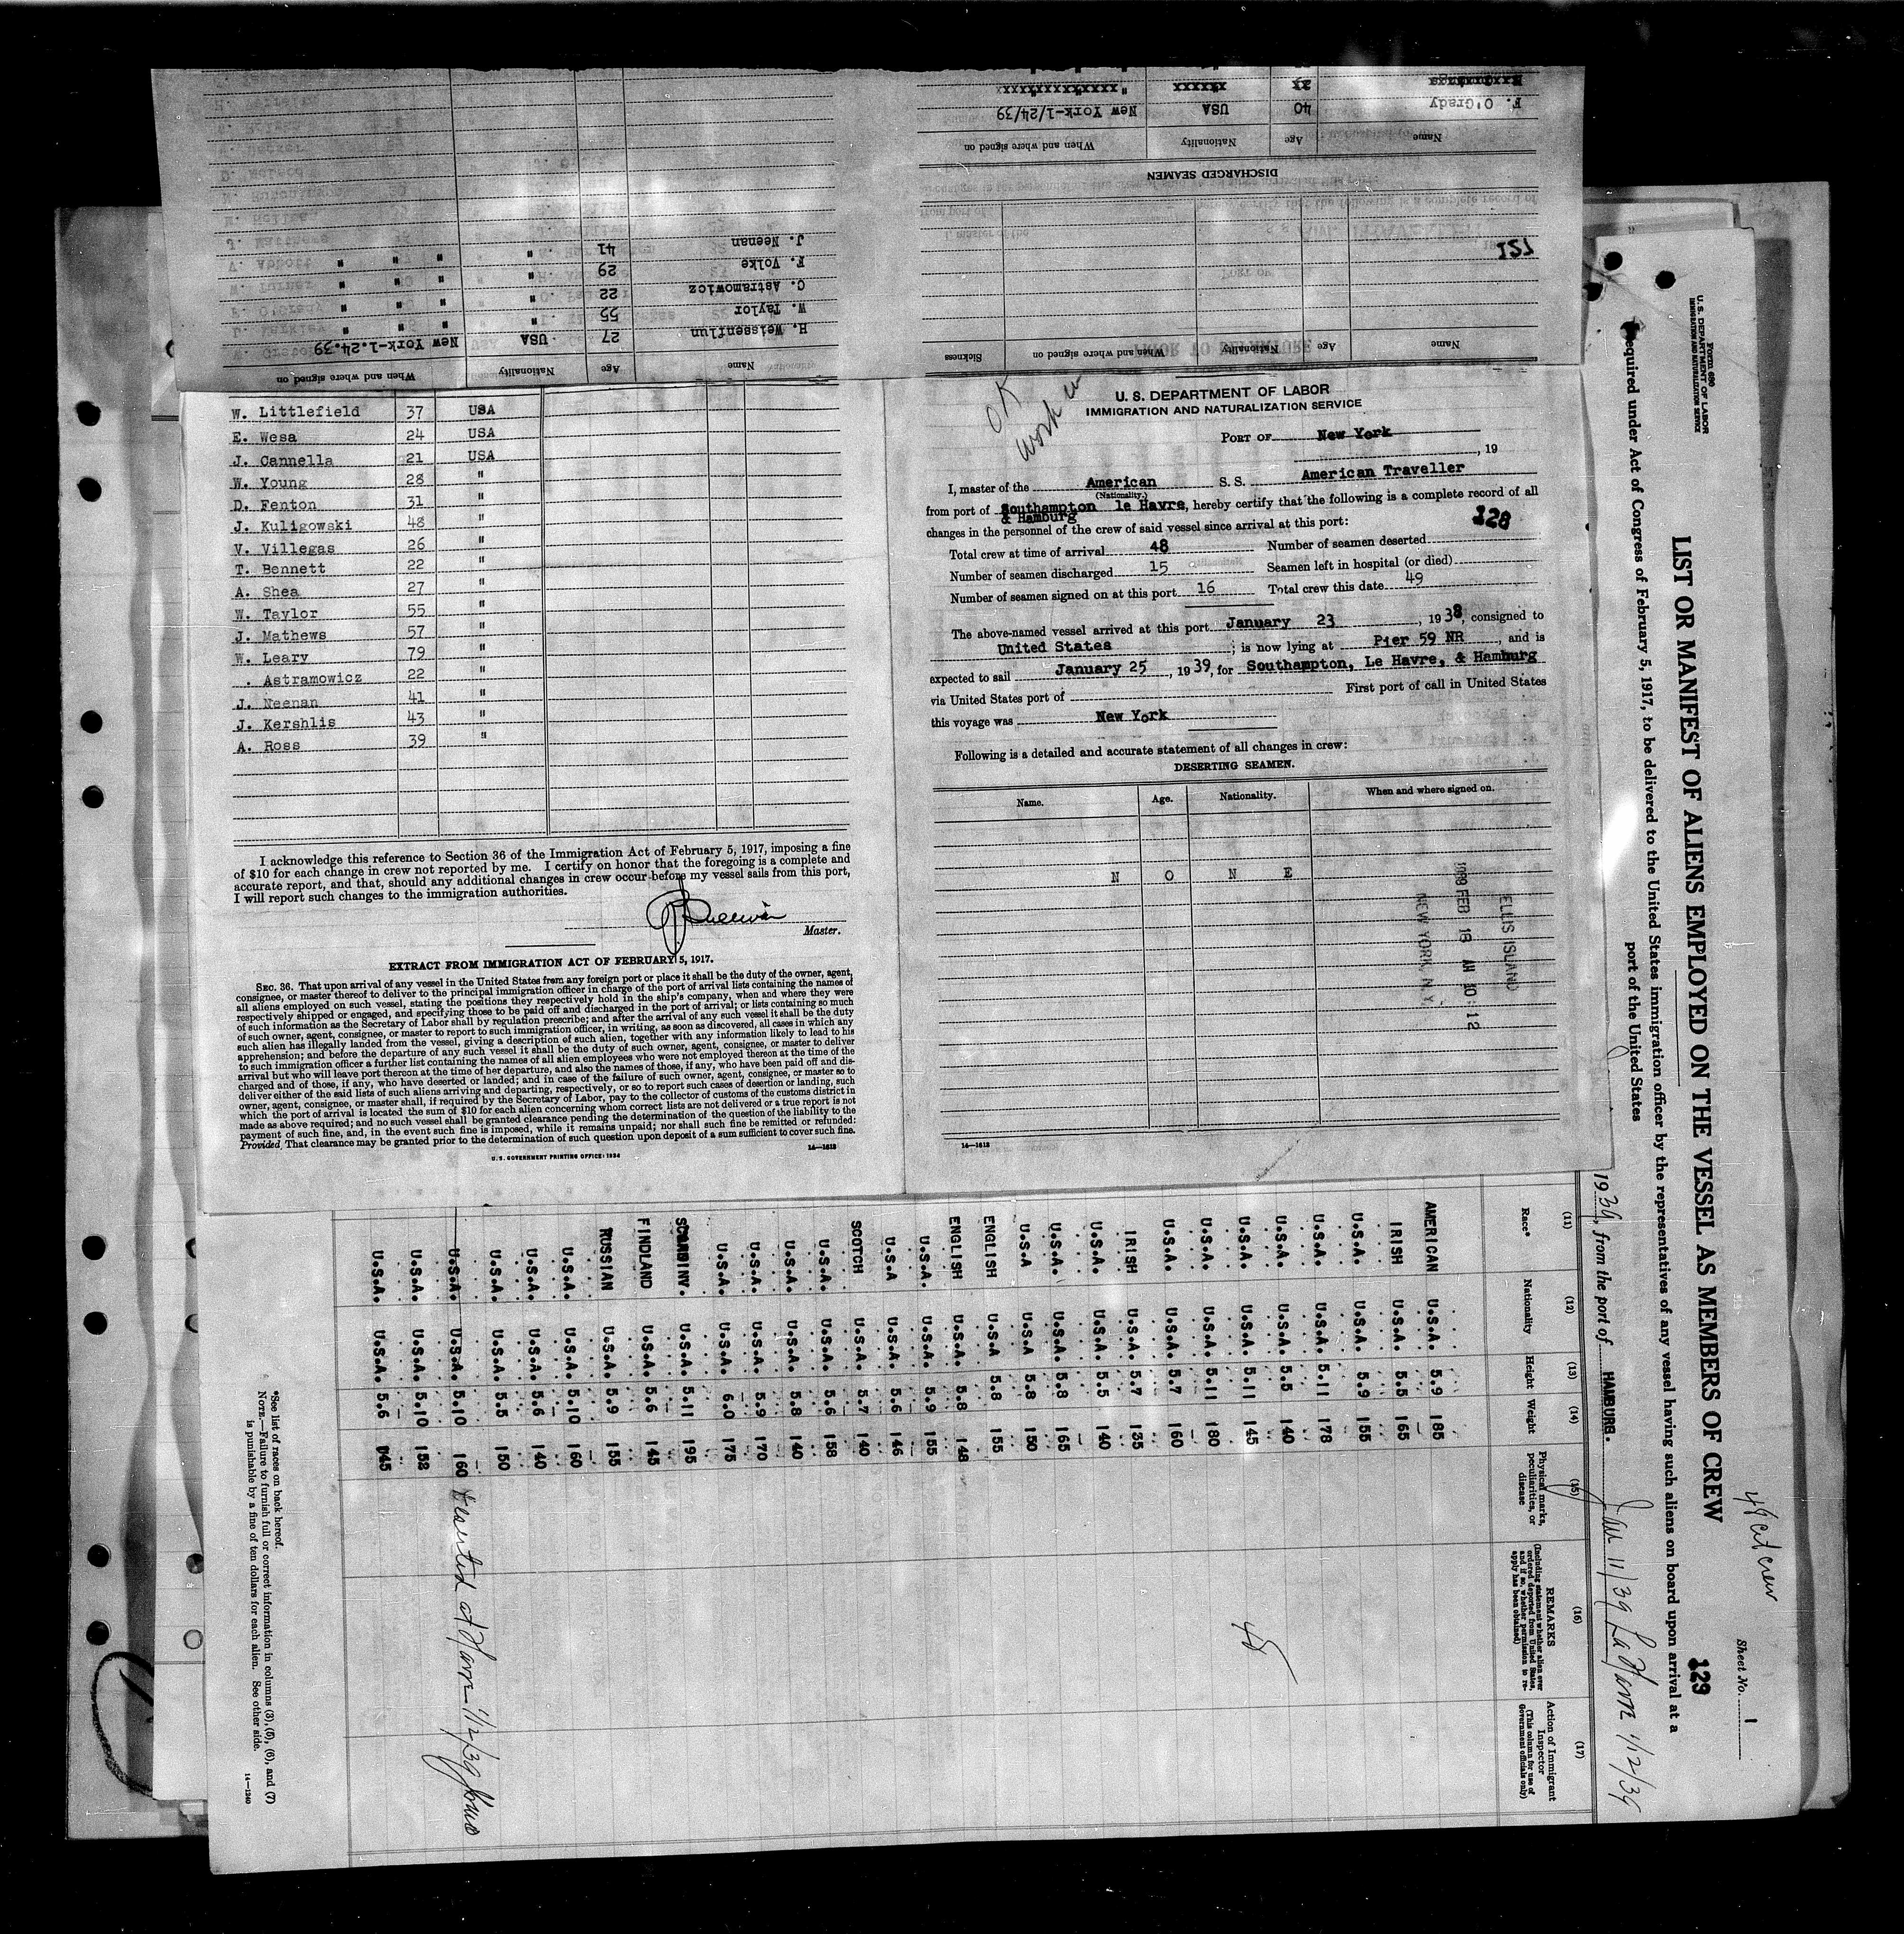 F. O'Grady 40 USA New York-1/24/39
Name Age Nationality When and where signed on
DISCHARGED SEAMEN
Name Age Nationality When and where signed on Sickness
J. Neenan 41 " " " "
F. Volke 29 " " " "
C. Astramowicz 22 " " " "
W. Taylor 55 " " " "
H. Weissenflun 27 USA New York-1.24.39
Name Age Nationality When and where signed on
W. Littlefield 37 USA
E. Wesa 24 USA
J. Cannella 21 USA
W. Young 28 "
D. Fenton 31 "
J. Kuligowski 48 "
V. Villegas 26 "
T. Bennett 22 "
A. Shea 27 "
W. Taylor 55 "
J. Mathews 57 "
W. Leary 79 "
. Astramowicz 22 "
J. Neenan 41 "
J. Kershlis 43 "
A. Ross 39 "
I acknowledge this reference to Section 36 of the Immigration Act of February 5, 1917, imposing a fine
of $10 for each change in crew not reported by me. I certify on honor that the foregoing is a complete and
accurate report, and that, should any additional changes in crew occur before my vessel sails from this port,
I will report such changes to the immigration authorities.
Master.
EXTRACT FROM IMMIGRATION ACT OF FEBRUARY 5, 1917.
SEC. 36. That upon arrival of any vessel in the United States from any foreign port or place it shall be the duty of the owner, agent,
consignee, or master thereof to deliver to the principal immigration officer in charge of the port of arrival lists containing the names of
all aliens employed on such vessel, stating the positions they respectively hold in the ship's company, when and where they were
respectively shipped or engaged, and specifying those to be paid off and discharged in the port of arrival; or lists containing so much
of such information as the Secretary of Labor shall by regulation prescribe; and after the arrival of any such vessel it shall be the duty
of such owner, agent, consignee, or master to report to such immigration officer, in writing, as soon as discovered, all cases in which any
such alien has illegally landed from the vessel, giving a description of such alien, together with any information likely to lead to his
apprehension; and before the departure of any such vessel it shall be the duty of such owner, agent, consignee, or master to deliver
to such immigration officer a further list containing the names of all alien employees who were not employed thereon at the time of the
arrival but who will leave port thereon at the time of her departure, and also the names of those, if any, who have been paid off and dis-
charged and of those, if any, who have deserted or landed; and in case of the failure of such owner, agent, consignee, or master so to
deliver either of the said lists of such aliens arriving and departing, respectively, or so to report such cases of desertion or landing, such
owner, agent, consignee, or master shall, if required by the Secretary of Labor, pay to the collector of customs of the customs district in
which the port of arrival is located the sum of $10 for each alien concerning whom correct lists are not delivered or a true report is not
made as above required; and no such vessel shall be granted clearance pending the determination of the question of the liability to the
payment of such fine, and, in the event such fine is imposed, while it remains unpaid; nor shall such fine be remitted or refunded:
Provided, That clearance may be granted prior to the determination of such question upon deposit of a sum sufficient to cover such fine.
U. S. GOVERNMENT PRINTING OFFICE: 1934 14—1613
OK
U. S. DEPARTMENT OF LABOR
IMMIGRATION AND NATURALIZATION SERVICE
PORT OF New York
, 19
I, master of the American S. S. American Traveller
(Nationality.)
from port of Southampton le Havre, hereby certify that the following is a complete record of all
& Hamburg
128
changes in the personnel of the crew of said vessel since arrival at this port:
Total crew at time of arrival 48 Number of seamen deserted
Number of seamen discharged 15 Seamen left in hospital (or died)
Number of seamen signed on at this port 16 Total crew this date 49
The above-named vessel arrived at this port January 23, 1938, consigned to
United States; is now lying at Pier 59 NR, and is
expected to sail January 25, 1939, for Southampton, Le Havre, & Hamburg
via United States port of First port of call in United States
this voyage was New York
Following is a detailed and accurate statement of all changes in crew:
DESERTING SEAMEN.
Name. Age. Nationality. When and where signed on.
N O N E
ELLIS ISLAND
FEB 18 AM 10 12
NEW YORK, N.Y.
14—1613
Form 680
U. S. DEPARTMENT OF LABOR
IMMIGRATION AND NATURALIZATION SERVICE
49 cit crew
Sheet No. 1
129
LIST OR MANIFEST OF ALIENS EMPLOYED ON THE VESSEL AS MEMBERS OF CREW
Required under Act of Congress of February 5, 1917, to be delivered to the United States immigration officer by the representatives of any vessel having such aliens on board upon arrival at a
port of the United States
1939, from the port of HAMBURG. Jan 11/39 La Havre 1/12/39
(11) (12) (13) (14) (15) (16) (17)
Race* Nationality Height Weight Physical marks, peculiarities, or disease
REMARKS (Including statement whether alien ever ordered deported from United States, and if so, whether permission to re-apply has been obtained)
Action of Immigrant Inspector (This column for use of Government officials only)
AMERICAN U.S.A. 5.9 185
IRISH U.S.A. 5.5 165
U.S.A. U.S.A. 5.9 155
U.S.A. U.S.A. 5.11 178
U.S.A. U.S.A. 5.5 140
U.S.A. U.S.A. 5.11 145
U.S.A. U.S.A. 5.11 180
U.S.A. U.S.A. 5.7 160
IRISH U.S.A. 5.7 135
U.S.A. U.S.A. 5.5 140
U.S.A. U.S.A. 5.8 165
U.S.A U.S.A 5.8 150
ENGLISH U.S.A 5.8 155
ENGLISH U.S.A. 5.8 148
U.S.A. U.S.A. 5.9 155
U.S.A U.S.A. 5.6 146
SCOTCH U.S.A. 5.7 140
U.S.A. U.S.A. 5.6 158
U.S.A. U.S.A. 5.8 140
U.S.A. U.S.A. 5.9 170
U.S.A. U.S.A. 6.0 175
SCANDINV. U.S.A. 5.11 195
FINDLAND U.S.A. 5.6 145
RUSSIAN U.S.A. 5.9 155
U.S.A. U.S.A. 5.10 160
U.S.A. U.S.A. 5.6 140
U.S.A. U.S.A. 5.5 150
U.S.A. U.S.A. 5.10 160 Deserted at Havre 1/12/39
U.S.A. U.S.A. 5.10 152
U.S.A. U.S.A. 5.6 145
*See list of races on back hereof.
NOTE.—Failure to furnish full or correct information in columns (3), (5), (6), and (7)
is punishable by a fine of ten dollars for each alien. See other side.
14—1240